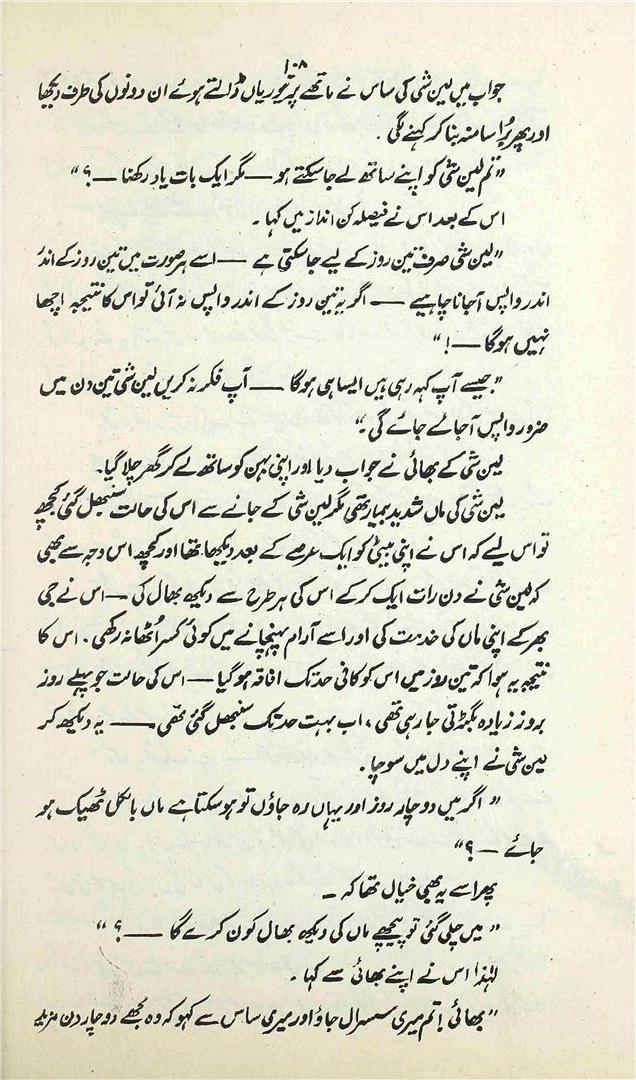 ۱۰۸
جواب میں لین شی کی ساس نے ماتھے پر تیوریاں ڈالتے ہوئے ان دونوں کی طرف دیکھا
اور پھر بُرا سا منہ بنا کر کہنے لگی
"تم لین شی کو اپنے ساتھ لے جا سکتے ہو — مگر ایک بات یاد رکھنا — ؟"
اس کے بعد اس نے فیصلہ کن انداز میں کہا ۔
"لین شی صرف تین روز کے لیے جا سکتی ہے — اسے ہر صورت میں تین روز کے اندر
اندر واپس آ جانا چاہیے — اگر یہ تین روز کے اندر واپس نہ آئی تو اس کا نتیجہ اچھا
نہیں ہو گا — ! "
"جیسے آپ کہہ رہی ہیں ایسا ہی ہو گا — آپ فکر نہ کریں لین شی تین دن میں
ضرور واپس آ جائے جائے گی ۔"
لین شی کے بھائی نے جواب دیا اور اپنی بہن کو ساتھ لے کر گھر چلا گیا۔
لین شی کی ماں شدید بیمار تھی مگر لین شی کے جانے سے اس کی حالت سنبھل گئی کچھ
تو اس لیے کہ اس نے اپنی بیٹی کو ایک عرصے کے بعد دیکھا تھا اور کچھ اس وجہ سے بھی
کہ لین شی نے دن رات ایک کر کے اس کی ہر طرح سے دیکھ بھال کی — اس نے جی
بھر کے اپنی ماں کی خدمت کی اور اسے آرام پہنچانے میں کوئی کسر اُٹھا نہ رکھی ۔ اس کا
نتیجہ یہ ہوا کہ تین روز میں اس کو کافی حد تک افاقہ ہو گیا — اس کی حالت جو پہلے روز
بروز زیادہ بگڑتی جا رہی تھی ، اب بہت حد تک سنبھل گئی تھی — یہ دیکھ کر
لین شی نے اپنے دل میں سوچا ۔
"اگر میں دو چار روز اور یہاں رہ جاؤں تو ہو سکتا ہے ماں بالکل ٹھیک ہو
جائے — ؟"
پھر اسے یہ بھی خیال تھا کہ ۔
"میں چلی گئی تو پیچھے ماں کی دیکھ بھال کون کرے گا — ؟ "
لہٰذا اس نے اپنے بھائی سے کہا ۔
"بھائی ! تم میری سسرال جاؤ اور میری ساس سے کہو کہ وہ مجھے دو چار دن مزید